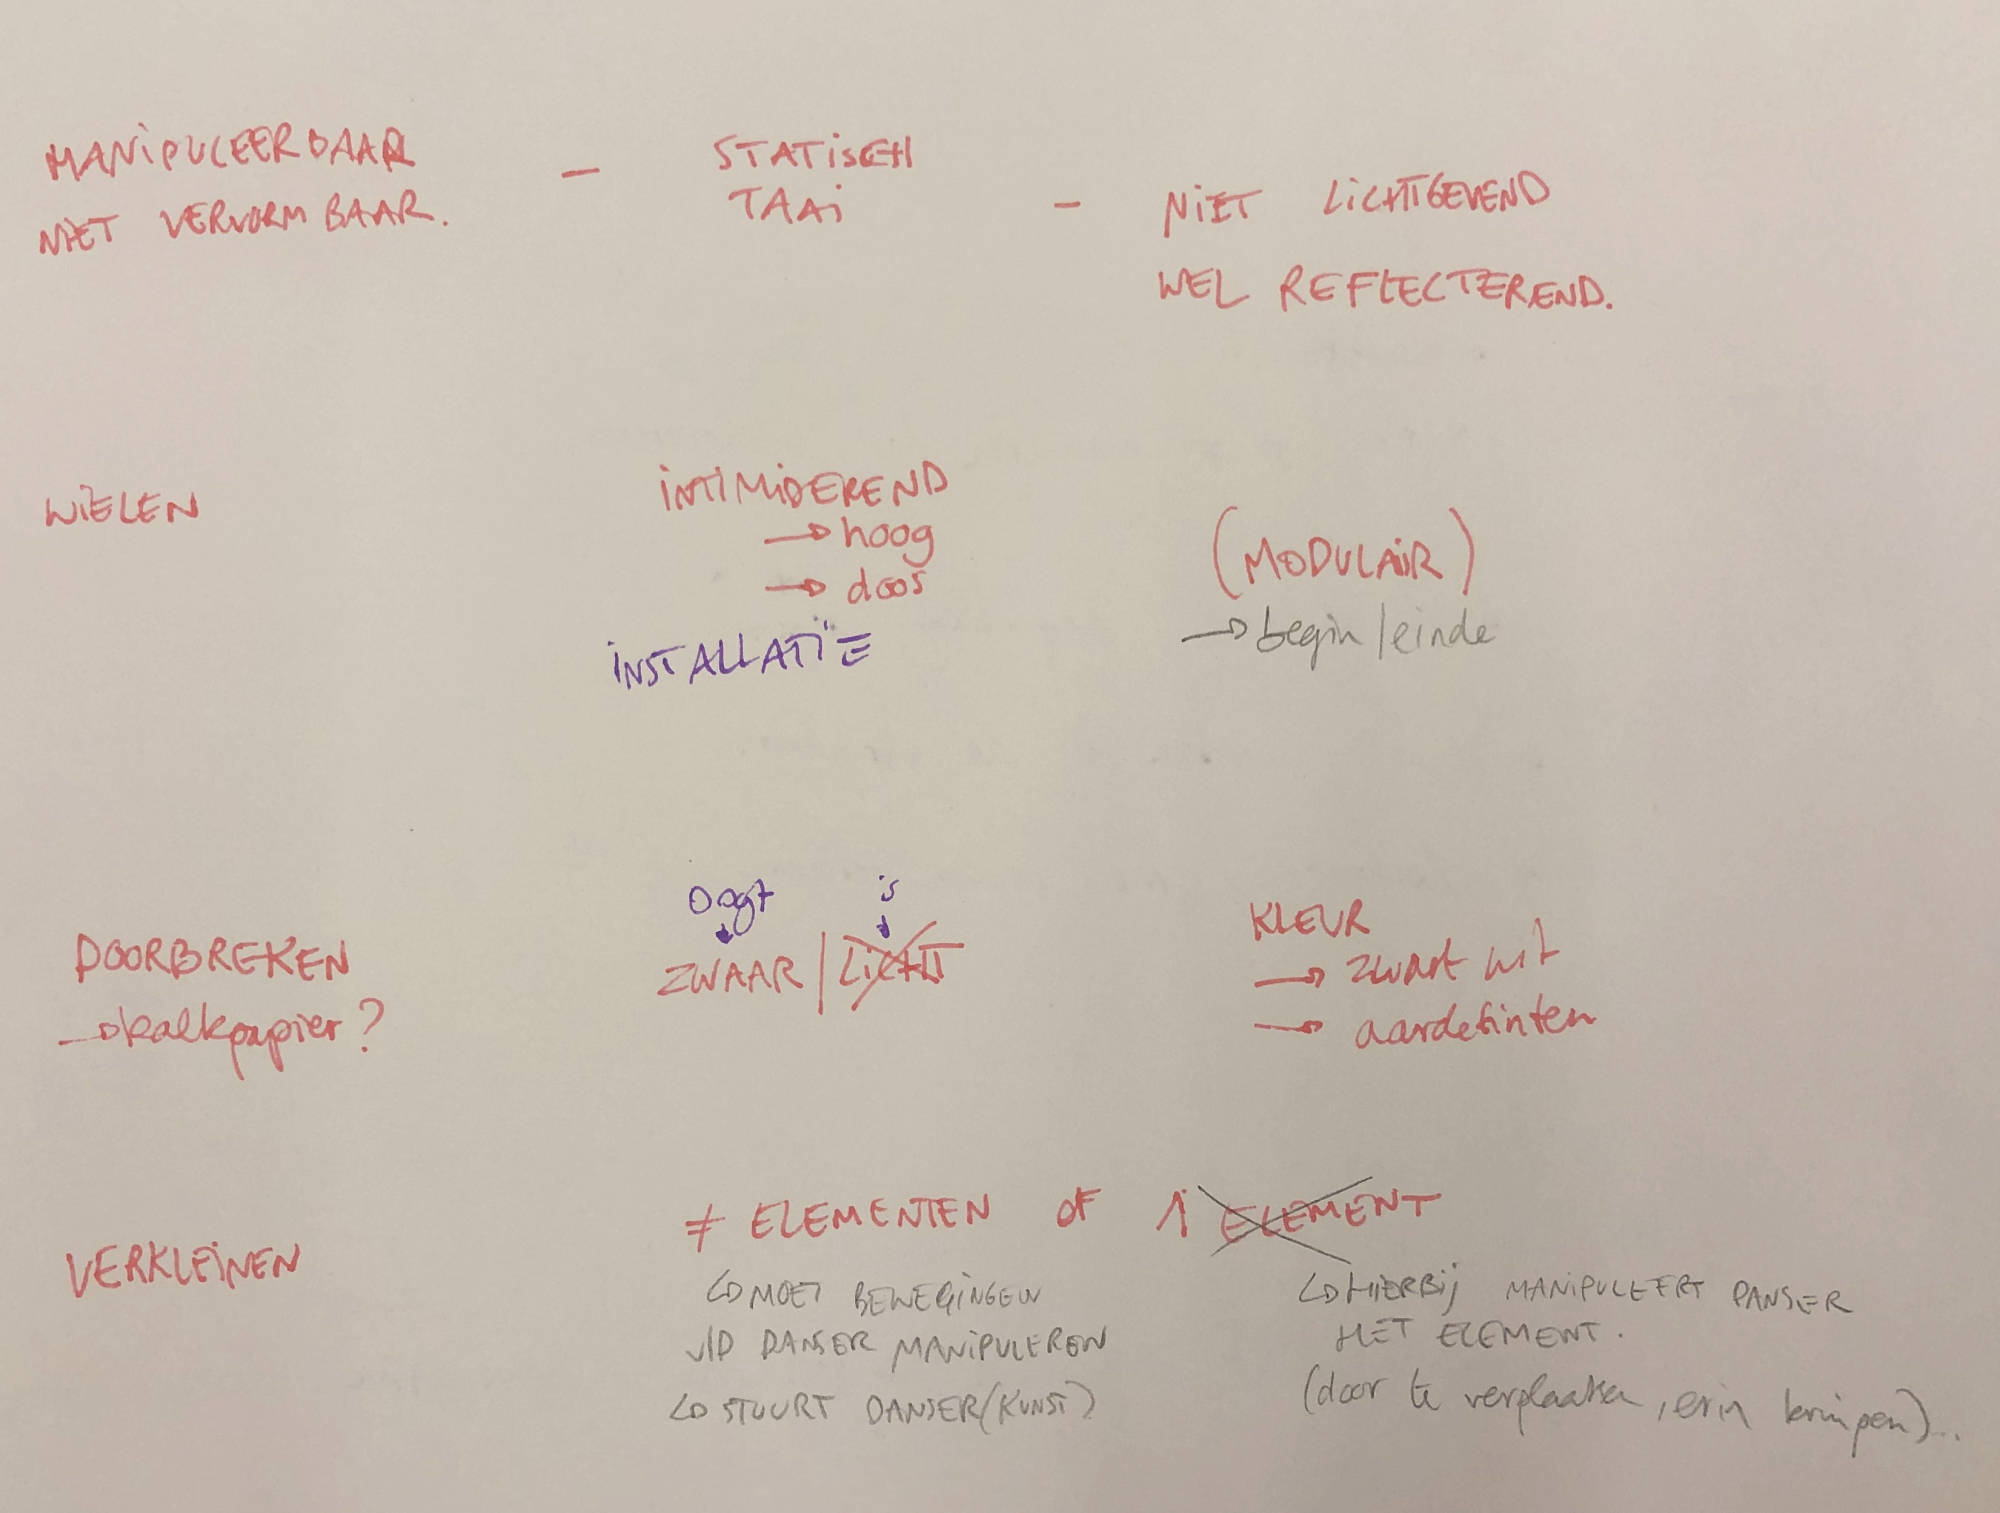 MANIPULEERBAAR - STATISCH
NIET VERVORMBAAR. TAAI - NIET LICHTGEVEND
WEL REFLECTEREND.
WIELEN
INTIMIDEREND
→ hoog
→ doos
INSTALLATIE
(MODULAIR)
→ begin/einde
DOORBREKEN
→ kalkpapier?
oogt is
ZWAAR | LICHT
KLEUR
→ zwart wit
→ aardetinten
VERKLEINEN
≠ ELEMENTEN OF 1 ELEMENT
↳ MOET BEWEGINGEN
V/D DANSER MANIPULEREN
↳ STUURT DANSER (KUNST)
↳ HIERBIJ MANIPULEERT DANSER
HET ELEMENT.
(door te verplaatsen, erin kruipen)...